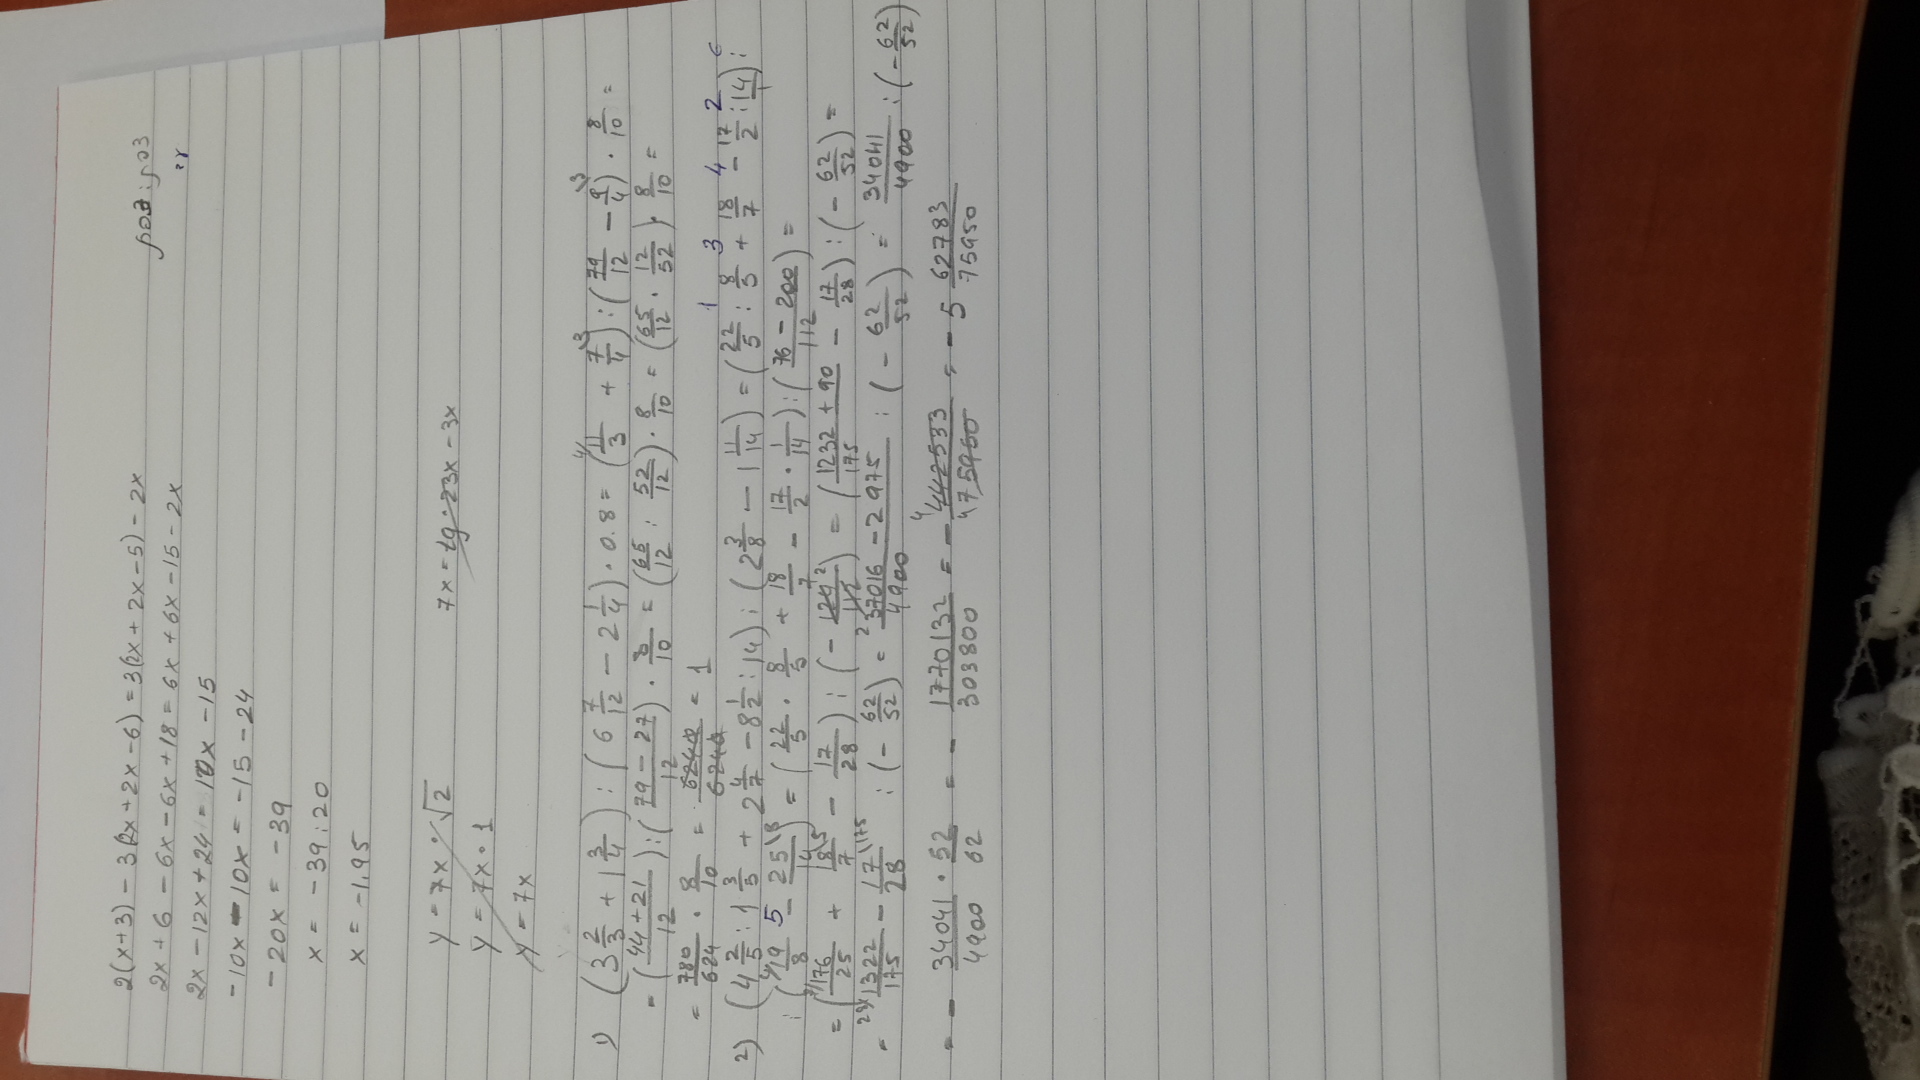 poz : poz
2(x+3) - 3(2x+2x-6) = 3(2x+2x-5) - 2x
2x + 6 - 6x - 6x + 18 = 6x + 6x - 15 - 2x
2x - 12x + 24 = 10x - 15
-10x - 10x = -15 - 24
-20x = -39
x = -39 : 20
x = -1,95
y = 7x · √2
7x = tg · 23x - 3x
y = 7x · 1
y = 7x
1) (3 2/3 + 1 3/4) : (6 7/12 - 2 1/4) · 0.8 = (11/3 + 7/4) : (79/12 - 9/4) · 8/10 =
= (44+21/12) : (79-27/12) · 8/10 = (65/12 : 52/12) · 8/10 = (65/12 · 12/52) · 8/10 =
= 780/624 · 8/10 = 6240/6240 = 1
2) (4 2/5 : 1 3/5 + 2 4/7 - 8 1/2 : 14) : (2 3/8 - 1 11/14) = (22/5 : 8/5 + 18/7 - 17/2 : 14/1) :
: (19/8 - 25/14) = (22/5 · 8/5 + 18/7 - 17/2 · 1/14) : (76-200/112) =
= (176/25 + 18/7 - 17/28) : (- 124/112) = (1232+90/175 - 17/28) : (- 62/52) =
= 1322/175 - 17/28 : (- 62/52) = 37016-2975/4900 : (- 62/52) = 34041/4900 : (- 62/52)
= - 34041/4900 · 52/62 = - 1770132/303800 = - 442533/75950 = - 5 62783/75950